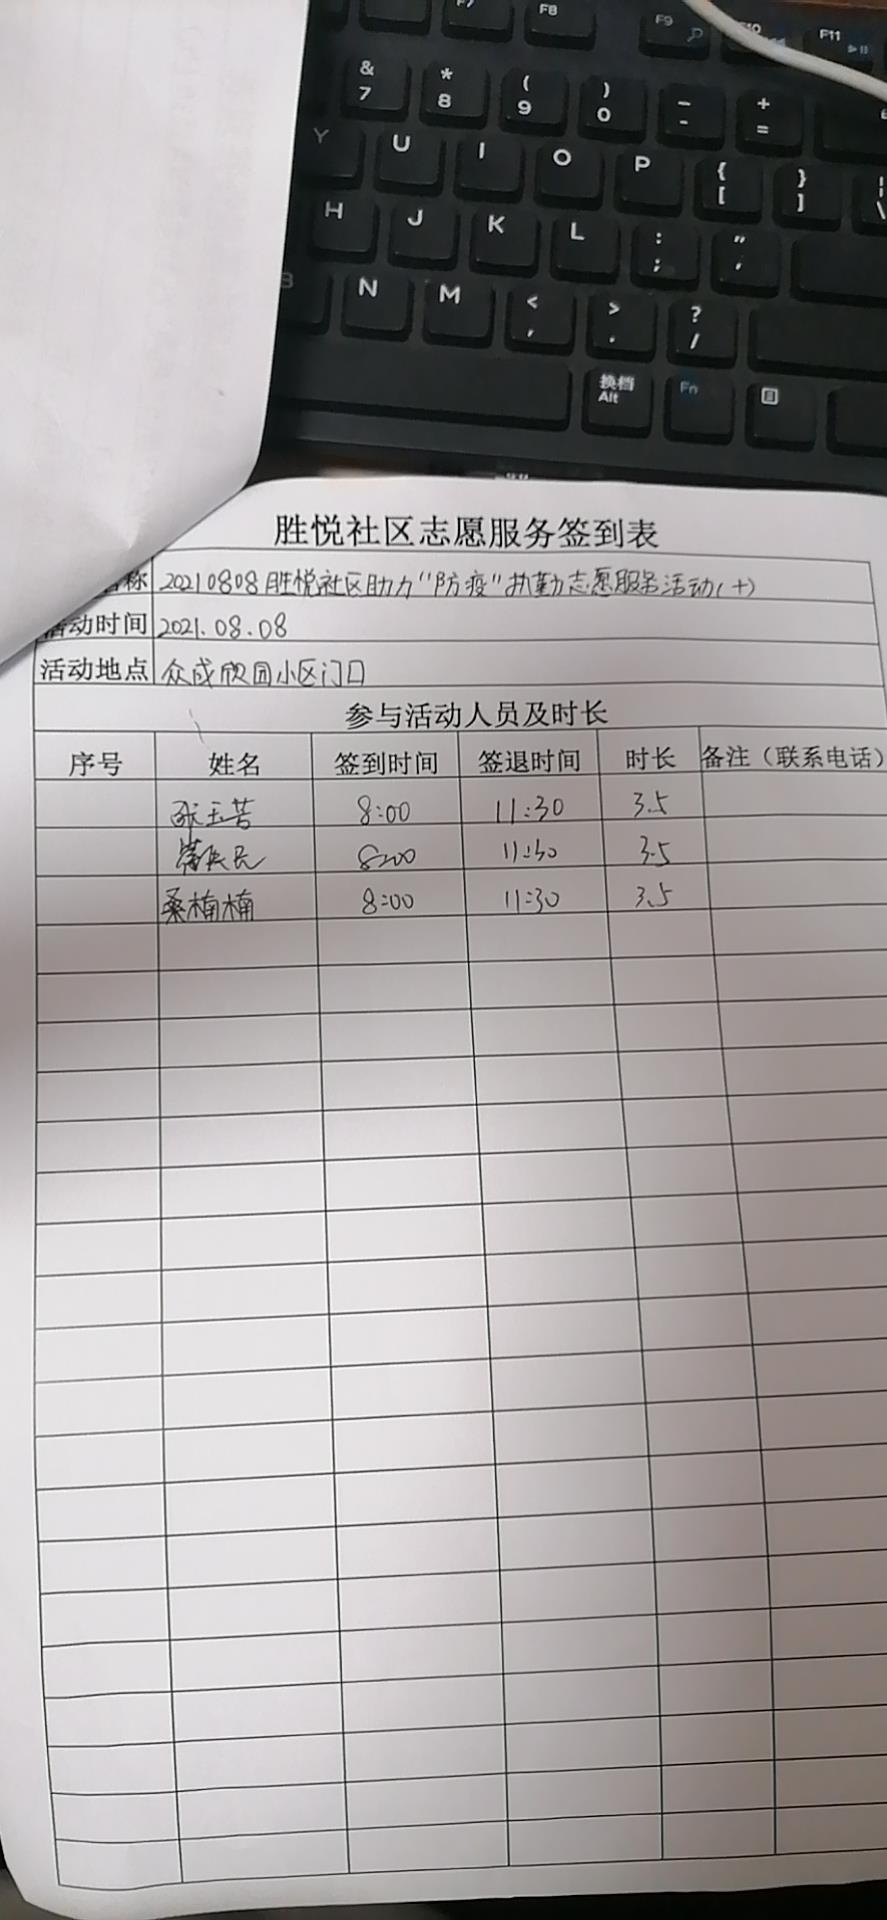 F7 F8 F9 F10 F11
& * ( ) _ +
7 8 9 0 - =
Y U I O P { }
[ ] \
H J K L : "
; '
B N M < > ?
, . /
换档 Fn
Alt
胜悦社区志愿服务签到表
称 20210808胜悦社区助力"防疫"执勤志愿服务活动(十)
活动时间 2021.08.08
活动地点 众成欣园小区门口
参与活动人员及时长
序号 姓名 签到时间 签退时间 时长 备注（联系电话）
张玉芳 8:00 11:30 3.5
民 8:00 11:30 3.5
桑楠楠 8:00 11:30 3.5